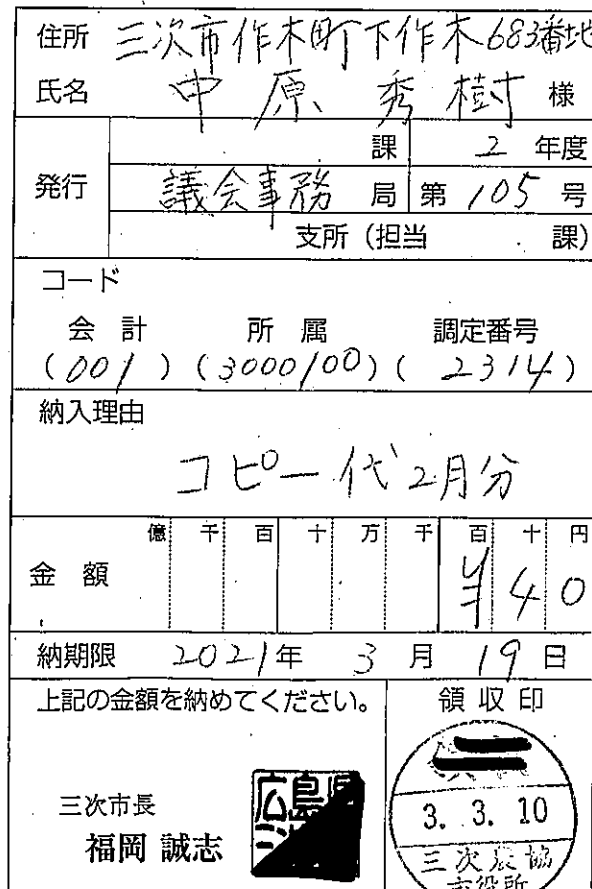 住所 三次市作木町下作木683番地
氏名 中原 秀樹 様
発行
課 2 年度
議会事務 局 第 105 号
支所(担当 課)
コード
会計 所属 調定番号
(001) (3000100) (2314)
納入理由
コピー代 2月分
億 千 百 十 万 千 百 十 円
金額 ¥40
納期限 2021年 3月 19日
上記の金額を納めてください。
領収印
三次市長
福岡 誠志
広島県
3. 3. 10
三次農協
市役所